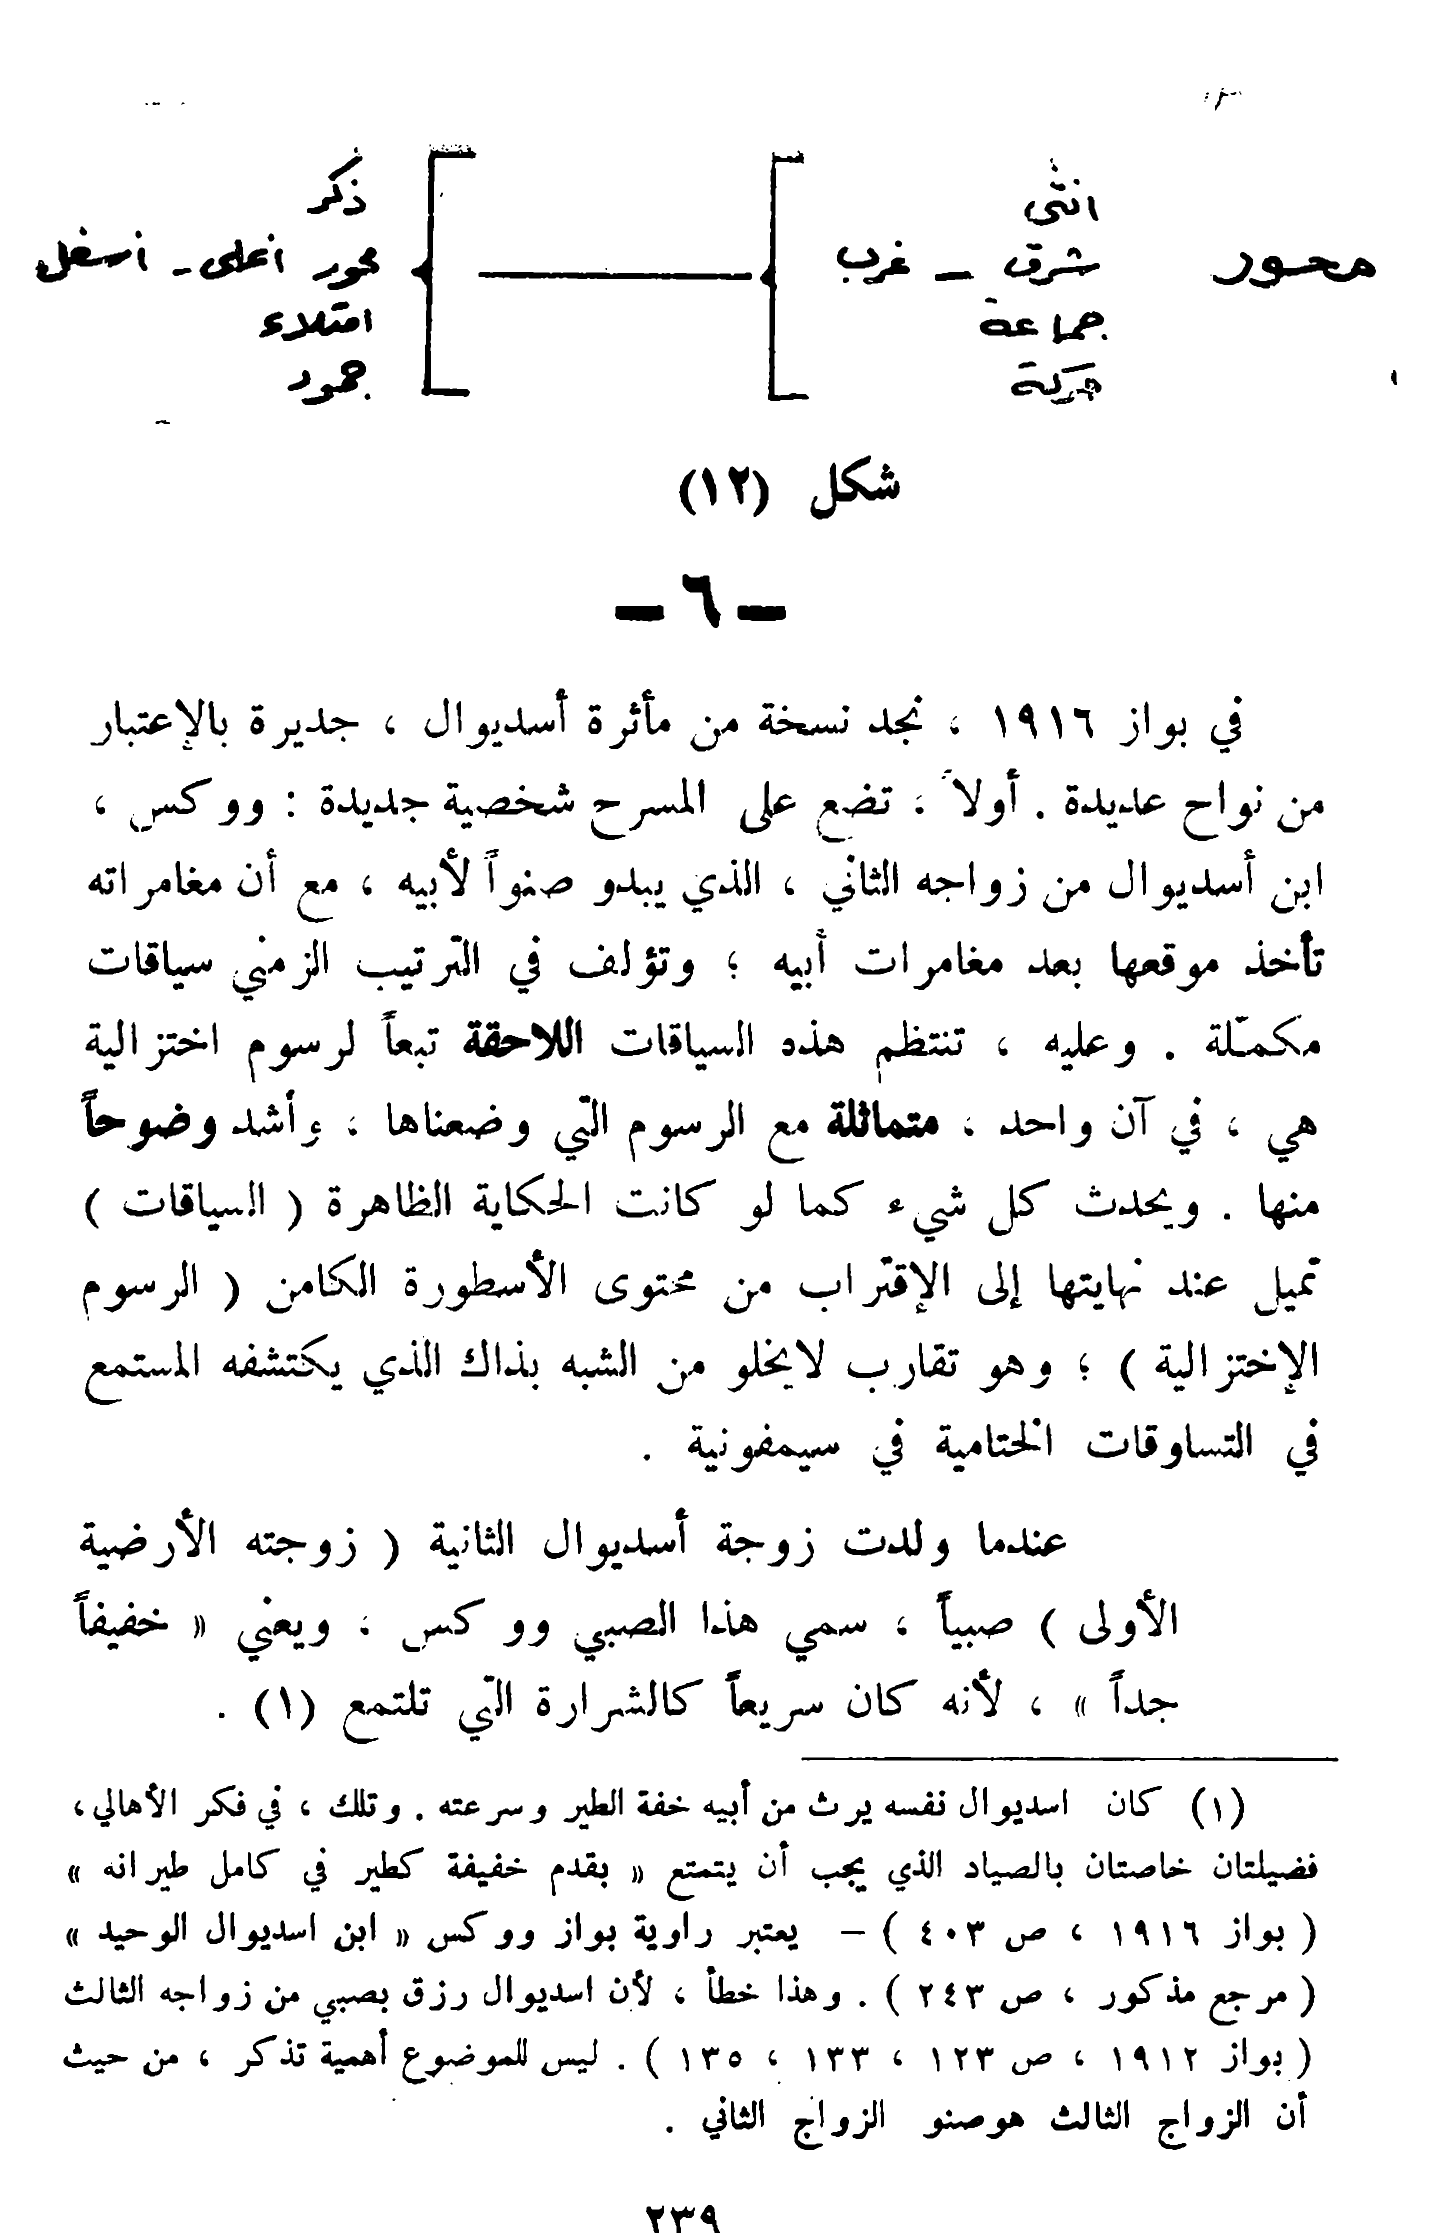 انثى ذكر
محور شرق - غرب محور أعلى - أسفل
جماعة امتلاء
حركة جمود
شكل (١٢)
- ٦ -
في بواز ١٩١٦ ، نجد نسخة من مأثرة أسديوال ، جديرة بالإعتبار
من نواح عديدة . أولاً ، تضع على المسرح شخصية جديدة : ووكس ،
ابن أسديوال من زواجه الثاني ، الذي يبدو صنواً لأبيه ، مع أن مغامراته
تأخذ موقعها بعد مغامرات أبيه ؛ وتؤلف في الترتيب الزمني سياقات
مكمّلة . وعليه ، تنتظم هذه السياقات اللاحقة تبعاً لرسوم اختزالية
هي ، في آن واحد ، متماثلة مع الرسوم التي وضعناها ، وأشد وضوحاً
منها . ويحدث كل شيء كما لو كانت الحكاية الظاهرة ( السياقات )
تميل عند نهايتها إلى الإقتراب من محتوى الأسطورة الكامن ( الرسوم
الإختزالية ) ؛ وهو تقارب لايخلو من الشبه بذاك الذي يكتشفه المستمع
في التساوقات الختامية في سيمفونية .
عندما ولدت زوجة أسديوال الثانية ( زوجته الأرضية
الأولى ) صبياً ، سمي هذا الصبي ووكس ، ويعني « خفيفاً
جداً » ، لأنه كان سريعاً كالشرارة التي تلتمع (١) .
(١) كان اسديوال نفسه يرث من أبيه خفة الطير وسرعته . وتلك ، في فكر الأهالي،
فضيلتان خاصتان بالصياد الذي يجب أن يتمتع « بقدم خفيفة كطير في كامل طيرانه »
( بواز ١٩١٦ ، ص ٤٠٣ ) – يعتبر راوية بواز ووكس « ابن اسديوال الوحيد »
( مرجع مذكور ، ص ٢٤٣ ) . وهذا خطأ ، لأن اسديوال رزق بصبي من زواجه الثالث
( بواز ١٩١٢ ، ص ١٢٣ ، ١٣٣ ، ١٣٥ ) . ليس للموضوع أهمية تذكر ، من حيث
أن الزواج الثالث هوصنو الزواج الثاني .
٢٣٩